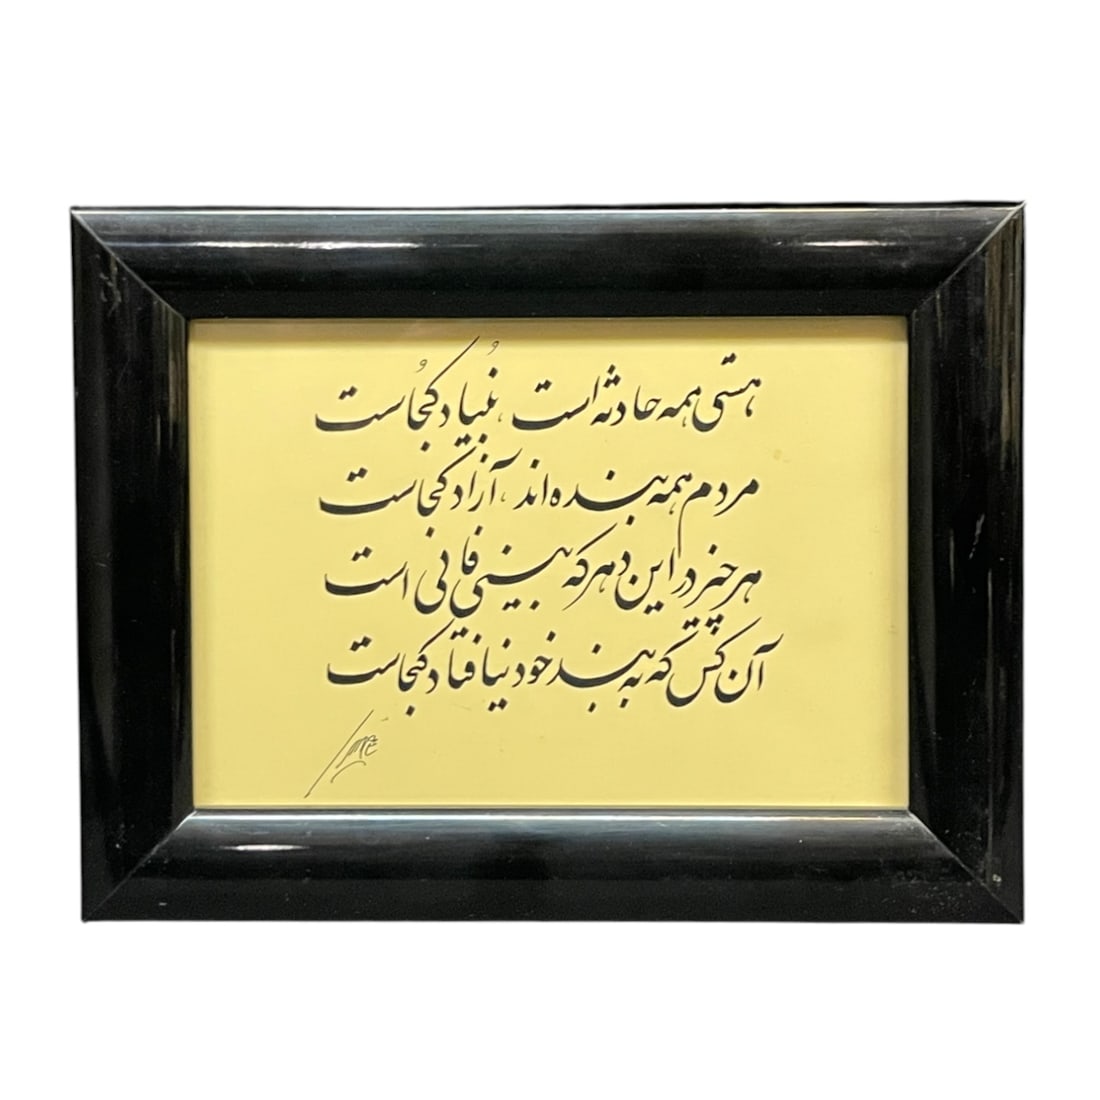 هستی همه حادثه است، بُنیاد کجُاست
مردم همه بنده اند، آزاد کجاست
هر چیز در این دهر که ببینی فانی است
آن کس که به بند خود نیافتاد کجاست